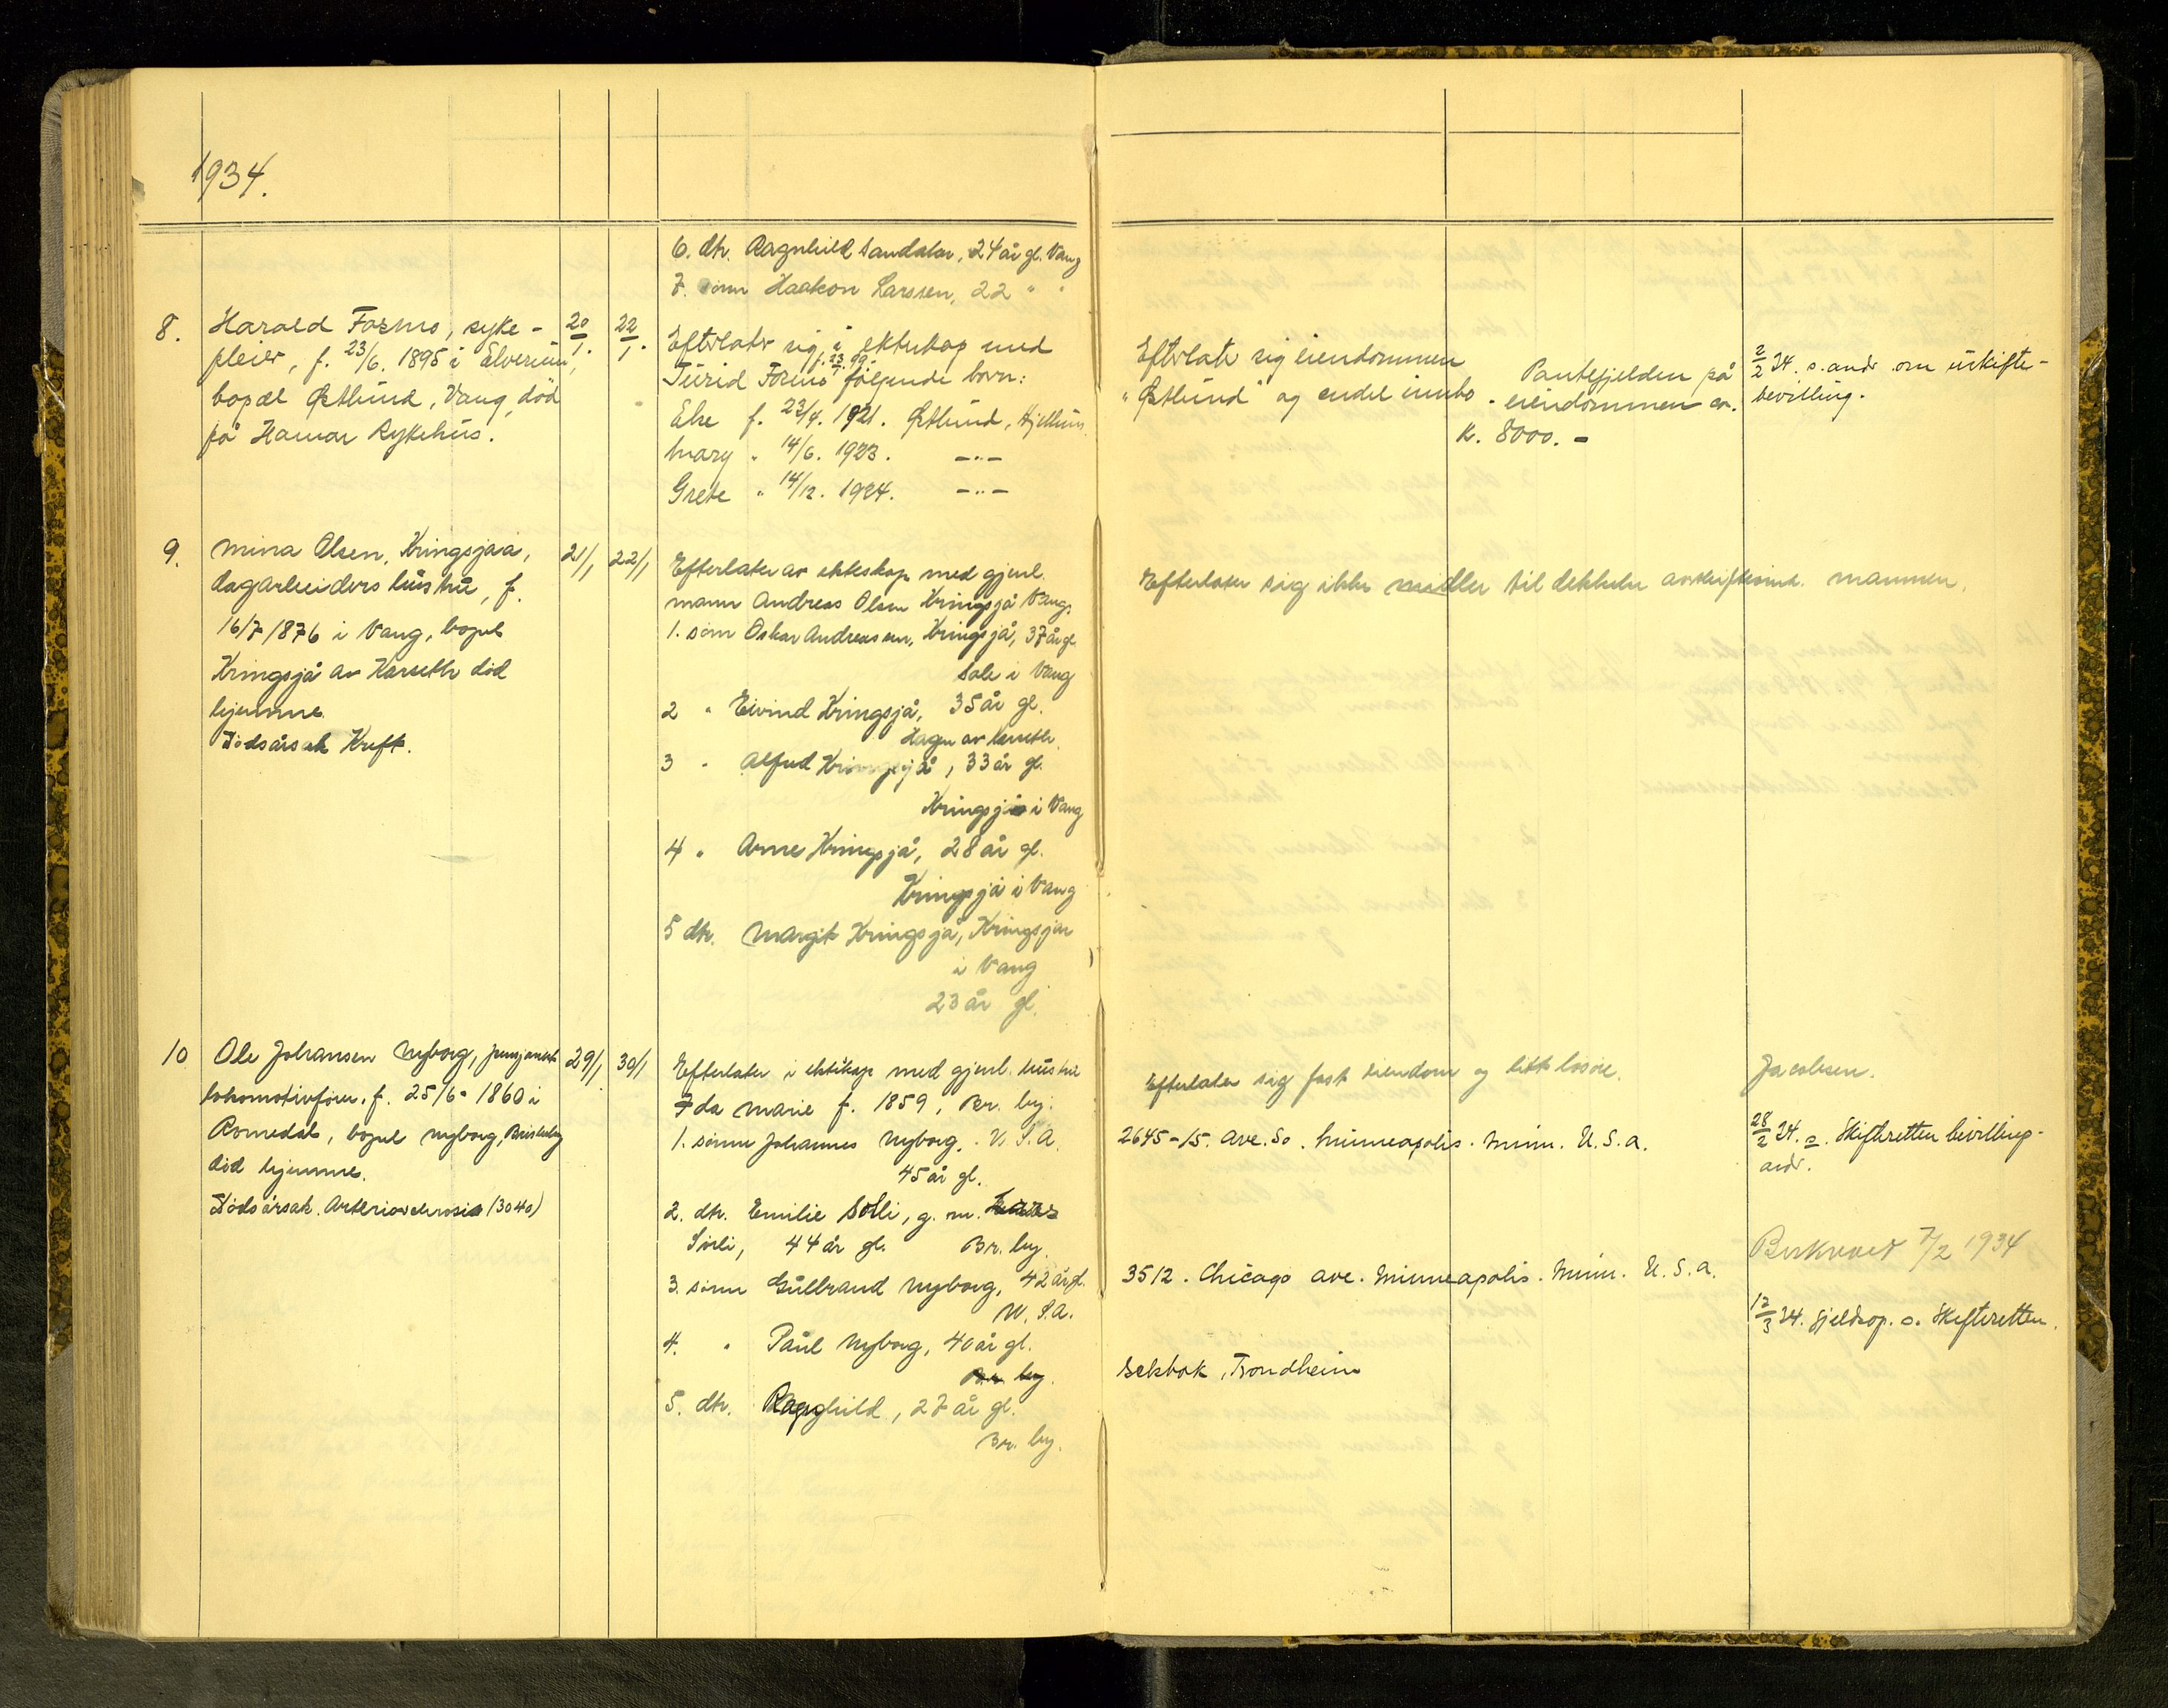 1934.
6. dtr. Ragnhild Sandaker, 24 år gl. Vang
7. sönn Haakon Larssen, 22 " "
8.
Harald Fosmo, syke-
pleier, f. 23/6. 1895 i Elverum,
bopæl Östlund, Vang, död
på Hamar Sykehus.
20/1.
22/1.
Efterlater sig i ekteskap med
Turid Fosmo følgende barn:
Else f. 23/4. 1921. Östlund, Hjellum
Mary " 14/6. 1923. -"-
Grete " 14/12. 1924. -"-
Efterlate sig eiendommen
"Östlund" og endel innbo.
Pantegjelden på
eiendommen er
k. 8000.-
2/2 34. s. andr. om uskifte-
bevilling.
9.
Mina Olsen, Kringsjaa,
dagarbeiders hustru, f.
16/7 1876 i Vang, bopel
Kringsjå av Karseth död
hjemme.
Dödsårsak Kreft.
21/1
22/1
Efterlater av ekteskap med gjenl.
mann Andreas Olsen Kringsjå Vang.
1. sönn Oskar Andreassen, Kringsjå, 37 år gl.
i Vang
2 " Eivind Kringsjå, 35 år gl.
Hagen av Karseth.
3 " Alfred Kringsjå, 33 år gl.
Kringsjå i Vang
4 " Arne Kringsjå, 28 år gl.
Kringsjå i Vang
5 dtr. Margit Kringsjå, Kringsjå
i Vang
23 år gl.
Efterlater sig ikke midler til dekkelse mannen.
10
Ole Johansen Nyborg, pensjonert
lokomotivförer. f. 25/6-1860 i
Romedal, bopel Nyborg, Briskeby
död hjemme.
Dödsårsak. Arteriosclerosis (3040)
29/1
30/1
Efterlater i ektskap med gjenl. hustru
Ida Marie f. 1859, Br. by.
1. sönn Johannes Nyborg. U. S. A.
45 år gl.
2. dtr. Emilie Solli, g. m.
44 år gl. Br. by.
3. sönn Gulbrand Nyborg, 42 år gl.
U. S. A.
4. " Paul Nyborg, 40 år gl.
Br. by.
5. dtr. Ragnhild, 27 år gl.
Br. by.
Efterlater sig fast eiendom og litt losöre.
2645-15. Ave. So. Minneapolis. Minn. U. S. A.
3512. Chicago Ave. Minneapolis. Minn. U. S. A.
Selsbak, Trondheim
Jacobsen.
28/2 34. s. Skifteretten bevilling-
andr.
7/2 1934
12/3 34. Gjeldsop. s. Skifteretten.